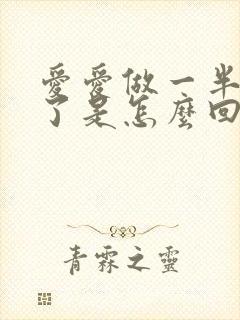 愛愛做一半
了是怎麼回
青霖之靈